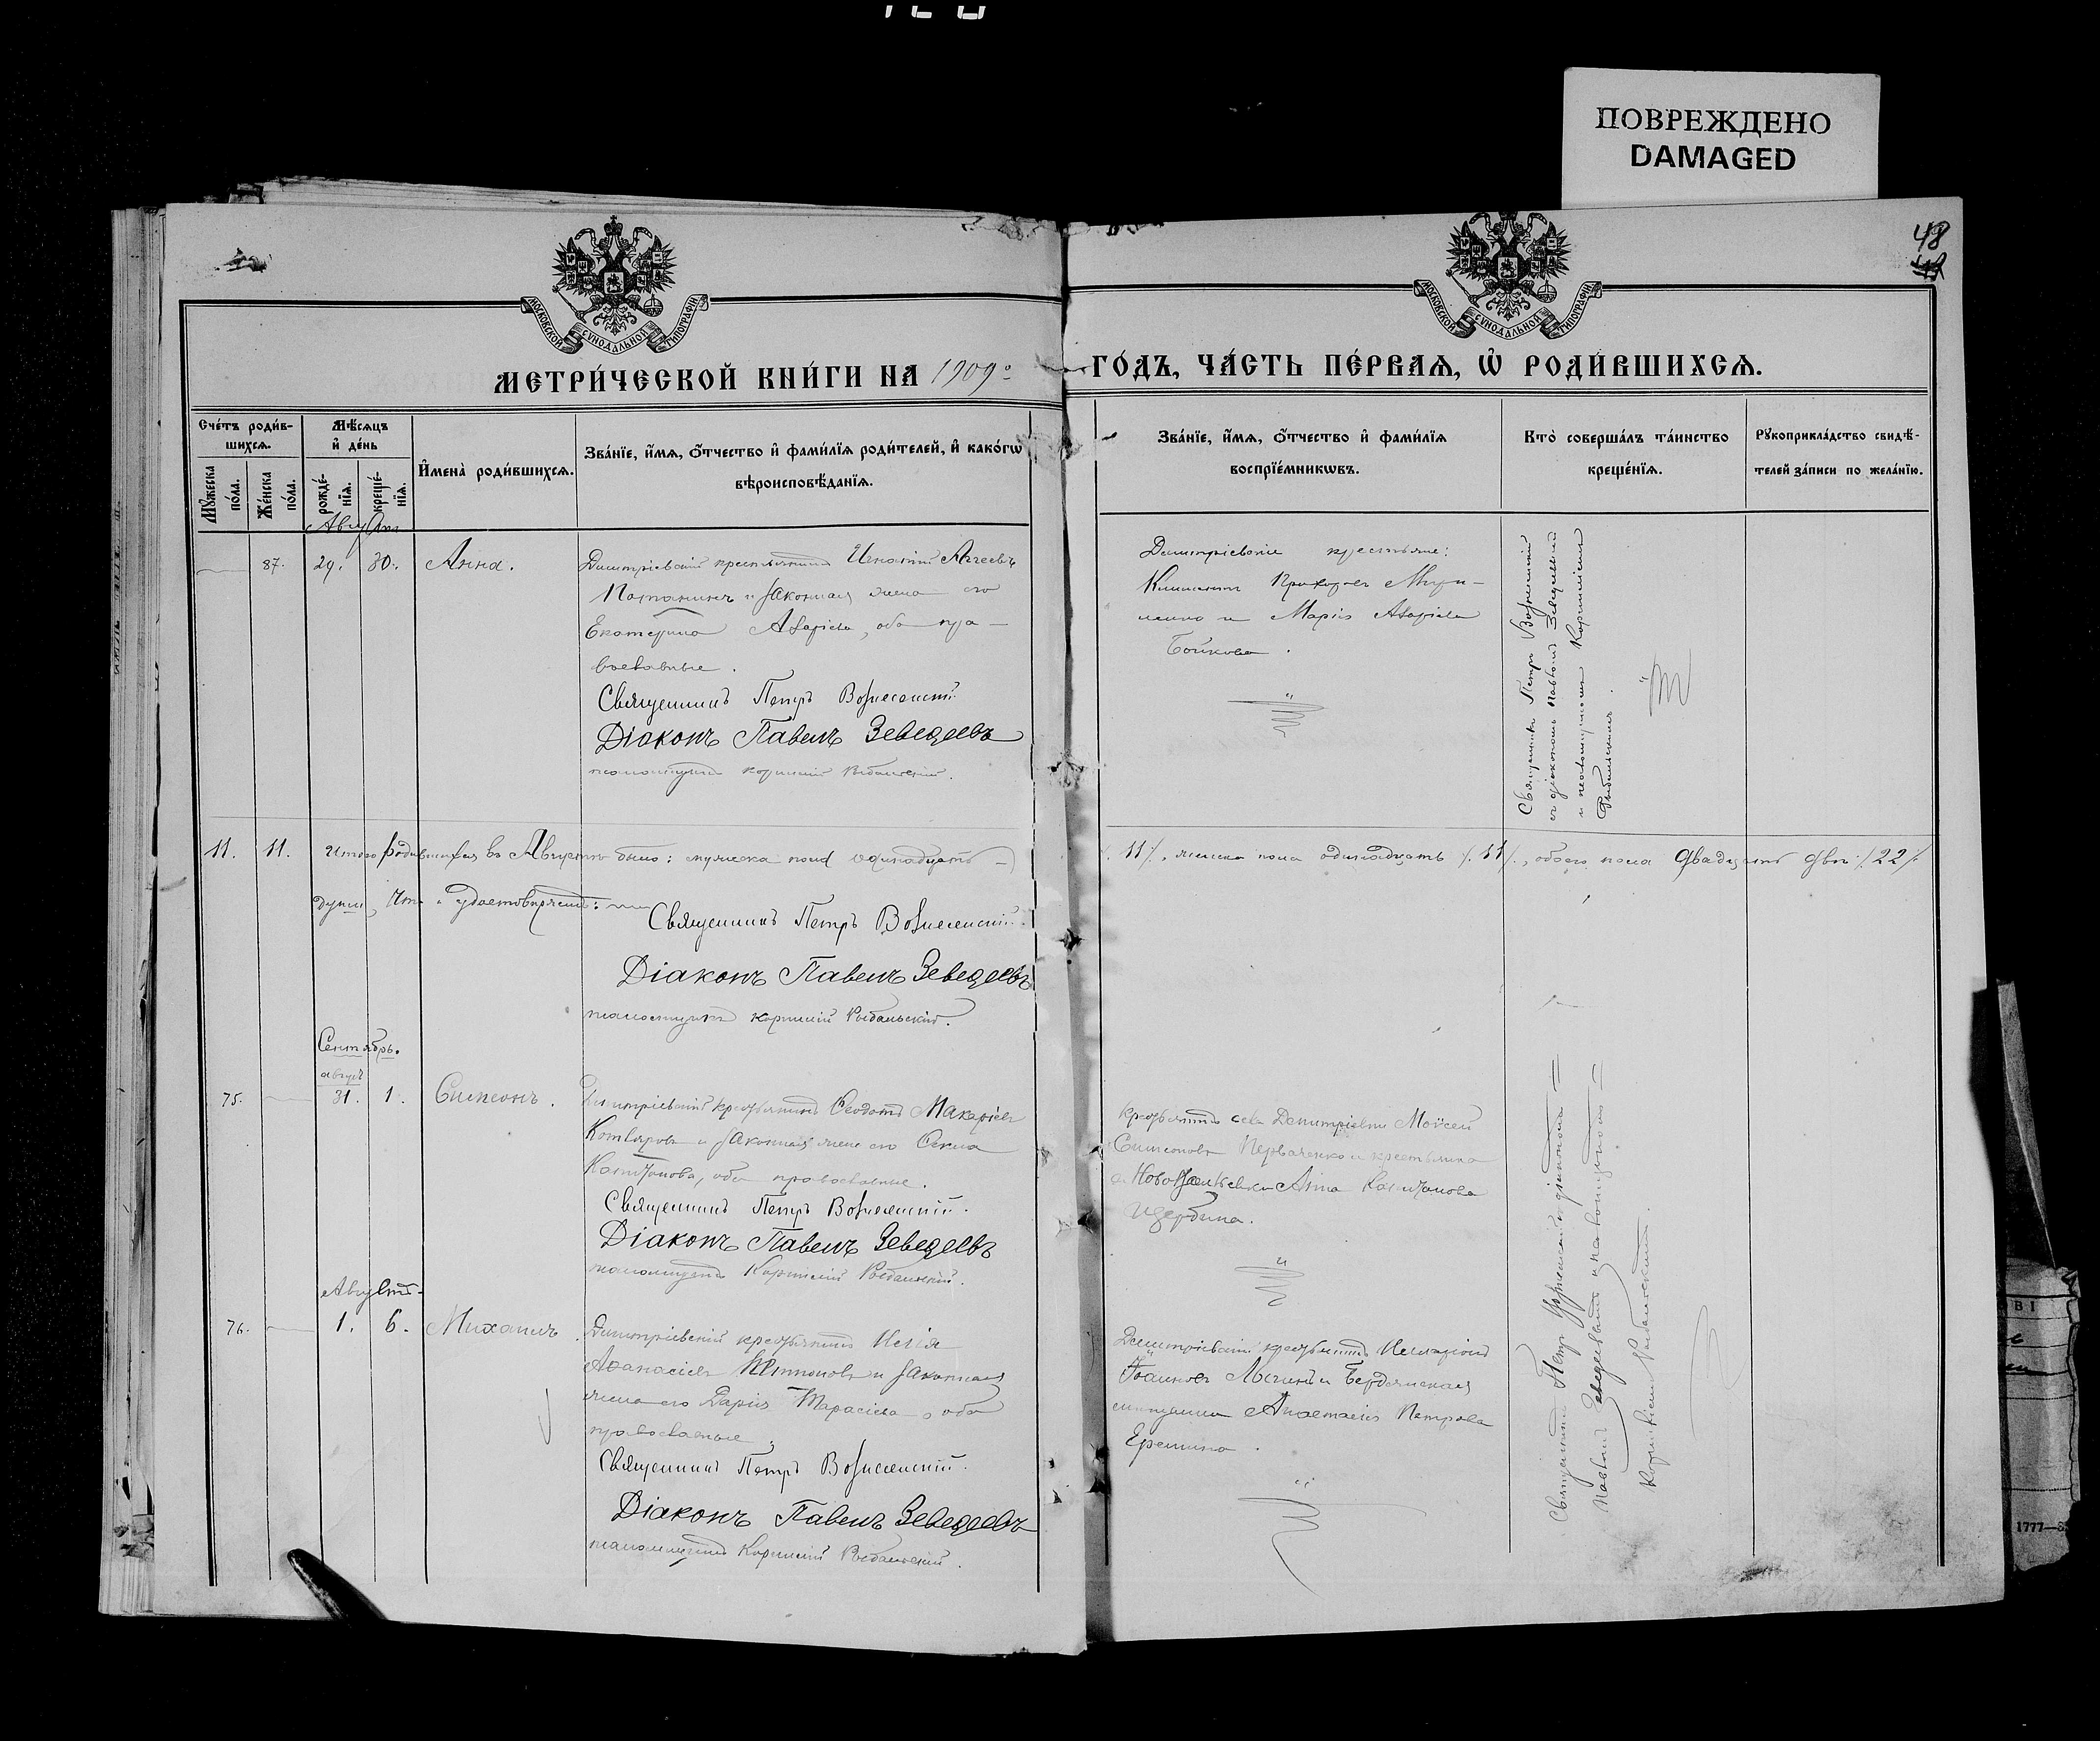 ПОВРЕЖДЕНО
DAMAGED
48
МОСКОВСКОЙ СУНОДАЛЬНОЙ ТИПОГРАФІИ
МОСКОВСКОЙ СУНОДАЛЬНОЙ ТИПОГРАФІИ
МЕТРИ́ЧЕСКОЙ КНИ́ГИ НА 1909º
ГО́ДЪ, ЧА́СТЬ ПЕ́РВАѦ, Ѡ҆ РОДИ́ВШИХСѦ.
Сче́тъ роди́в-
шихсѧ.
Мꙋ́жеска
по́ла.
Же́нска
по́ла.
Мѣ́сѧцъ
и҆ де́нь
рожде́-
нїѧ.
креще́-
нїѧ.
И҆мена̀ роди́вшихсѧ.
Зва́нїе, и҆́мѧ, ѻ҆́тчество и҆ фами́лїѧ роди́телей, и҆ како́гѡ
вѣроисповѣ́данїѧ.
Зва́нїе, и҆́мѧ, ѻ҆́тчество и҆ фами́лїѧ
воспрїе́мникѡвъ.
Кто̀ соверша́лъ та́инство
креще́нїѧ.
Рꙋкоприкла́дство свидѣ́-
телей за́писи по жела́нїю.
Августъ
87. 29. 30. Анна.
Димитріевскій крестьянинъ Игнатій Аггеевъ
Потанинъ и законная жена его
Екатерина Азарiева, оба пра-
вославные.
Священникъ Петръ Вознесенскій.
Діаконъ Павелъ Зеведеевъ
псаломщикъ Корнилій Рыбальскій.
Димитріевскіе крестьяне:
Климентъ Прохоровъ
и Марія Азаріева
Бойкова.
Священникъ Петръ Вознесенскій
съ діакономъ Павломъ Зеведеевымъ
и псаломщикомъ Корниліемъ
Рыбальскимъ.
11. 11. Итого родившихся въ Августѣ было: мужеска пола одинадцать
/11/, женска пола одинадцать /11/, обоего пола двадцать двѣ /22/
души, что и удостовѣряемъ:
Священникъ Петръ Вознесенскій.
Діаконъ Павелъ Зеведеевъ
псаломщикъ Корнилій Рыбальскій.
Сентябрь.
августъ
75. 31. 1. Симеонъ.
Димитріевскій крестьянинъ Ѳеодотъ Макаріевъ
Котляровъ и законная жена его Ѳекла
Капитонова, оба православные.
Священникъ Петръ Вознесенскій.
Діаконъ Павелъ Зеведеевъ
псаломщикъ Корнилій Рыбальскій.
крестьянинъ села Димитріевки Моисей
Симеоновъ Перваченко и крестьянка
с. Анна Капитонова
Щербина.
Августъ
76. 1. 6. Михаилъ.
Димитріевскій крестьянинъ Илія
Аѳанасіевъ и законная
жена его Дарія Тарасіева, оба
православные.
Священникъ Петръ Вознесенскій.
Діаконъ Павелъ Зеведеевъ
псаломщикъ Корнилій Рыбальскій.
Димитріевскій крестьянинъ Иларіонъ
Іоанновъ и Бердянская
мѣщанка Анастасія Петрова
Еремина.
Священникъ Петръ Вознесенскій съ діакономъ
Павломъ Зеведеевымъ и псаломщикомъ
Корниліемъ Рыбальскимъ.
1777—8